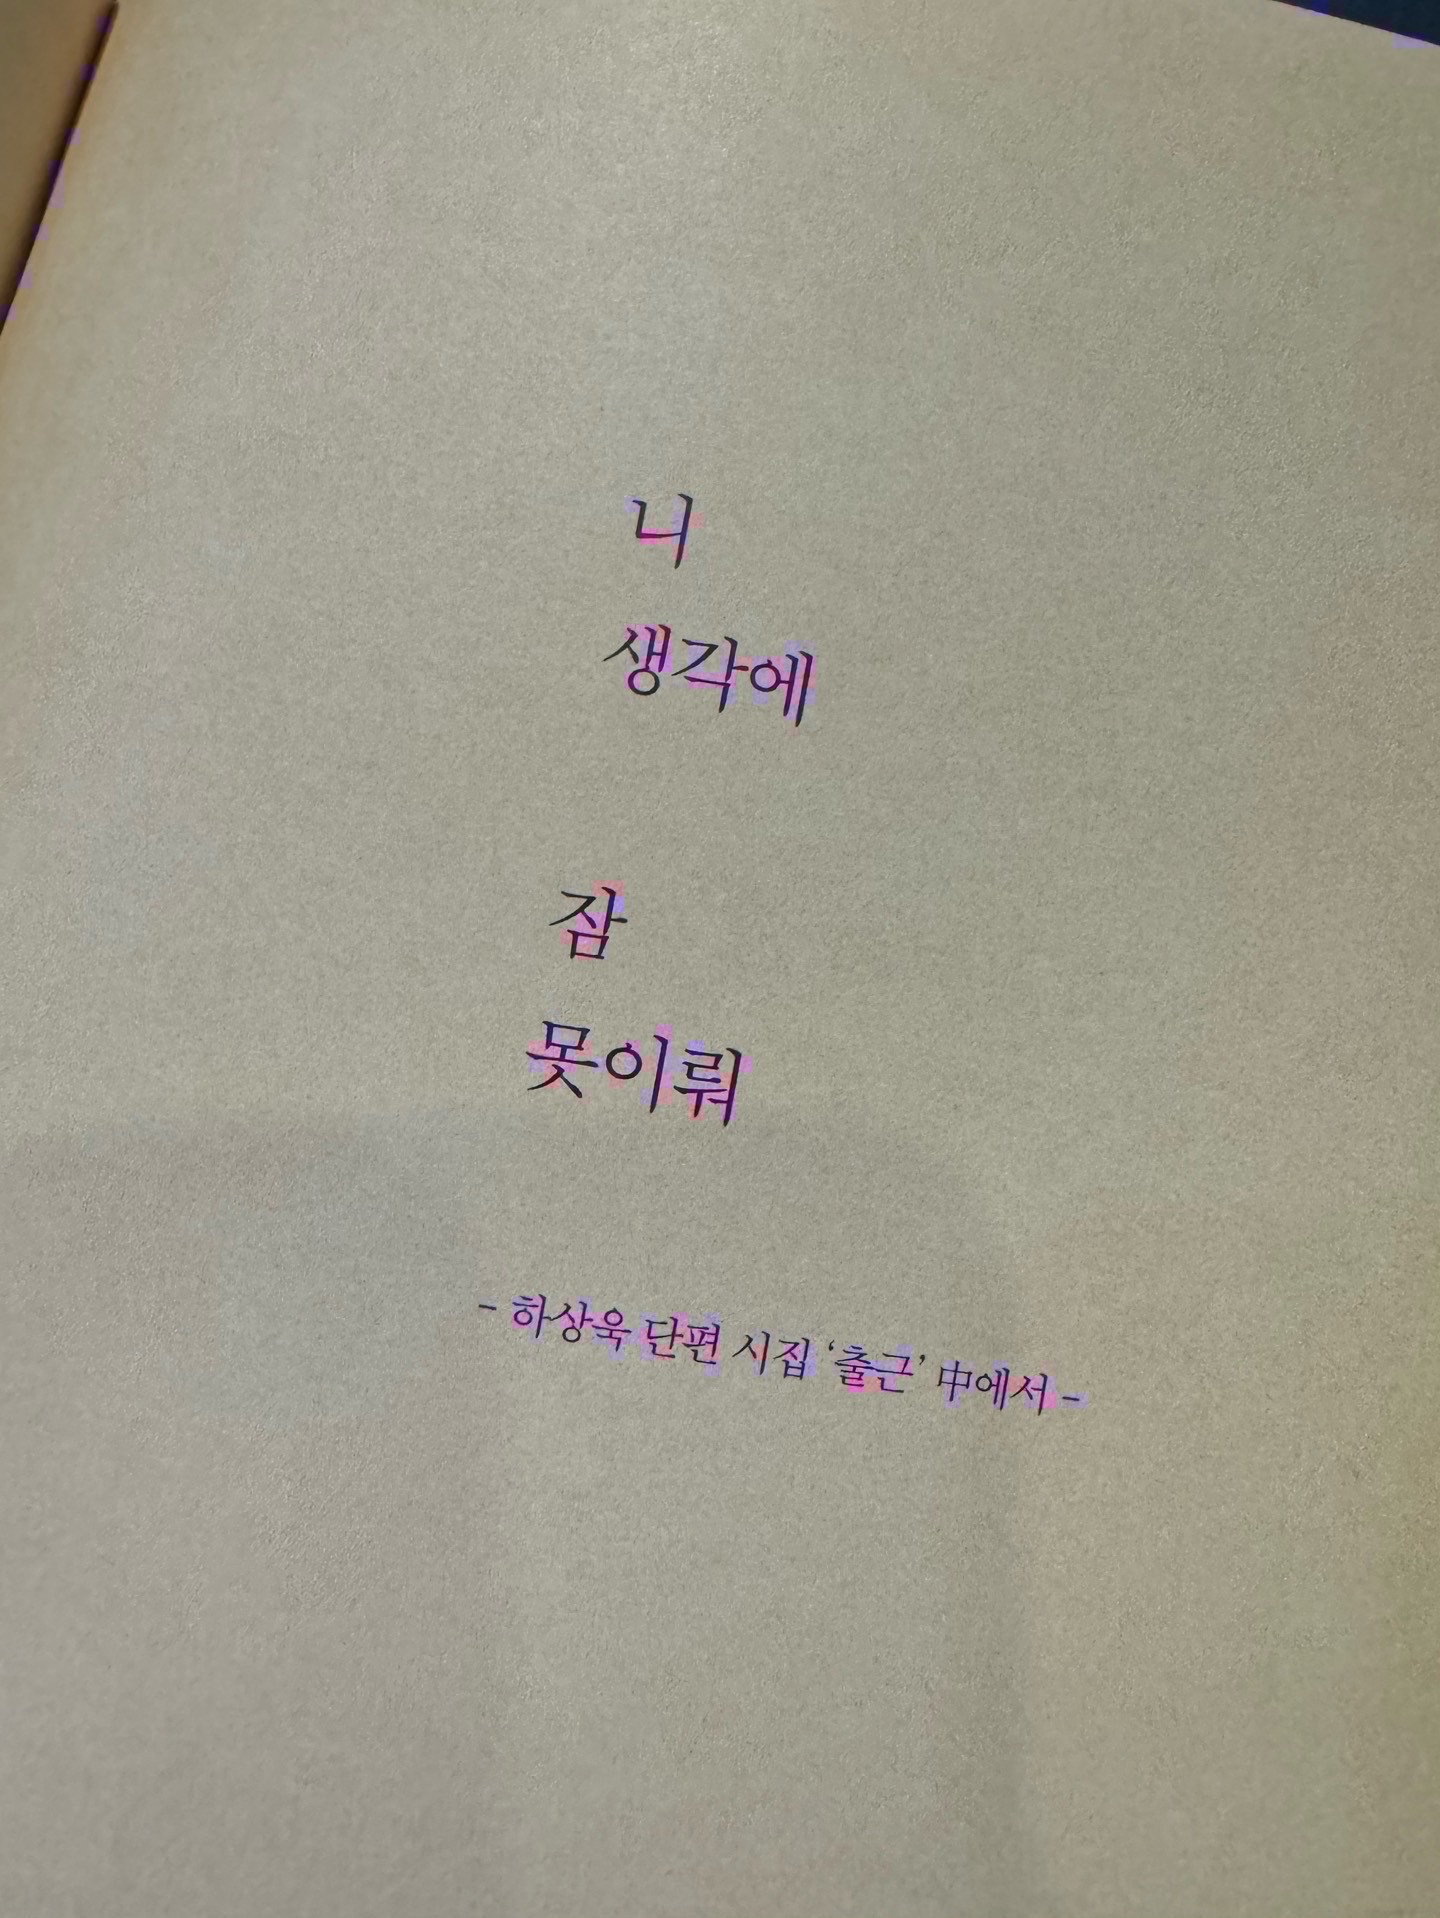 니
생각에
잠
못이뤄
- 하상욱 단편 시집 ‘출근’ 中에서 -